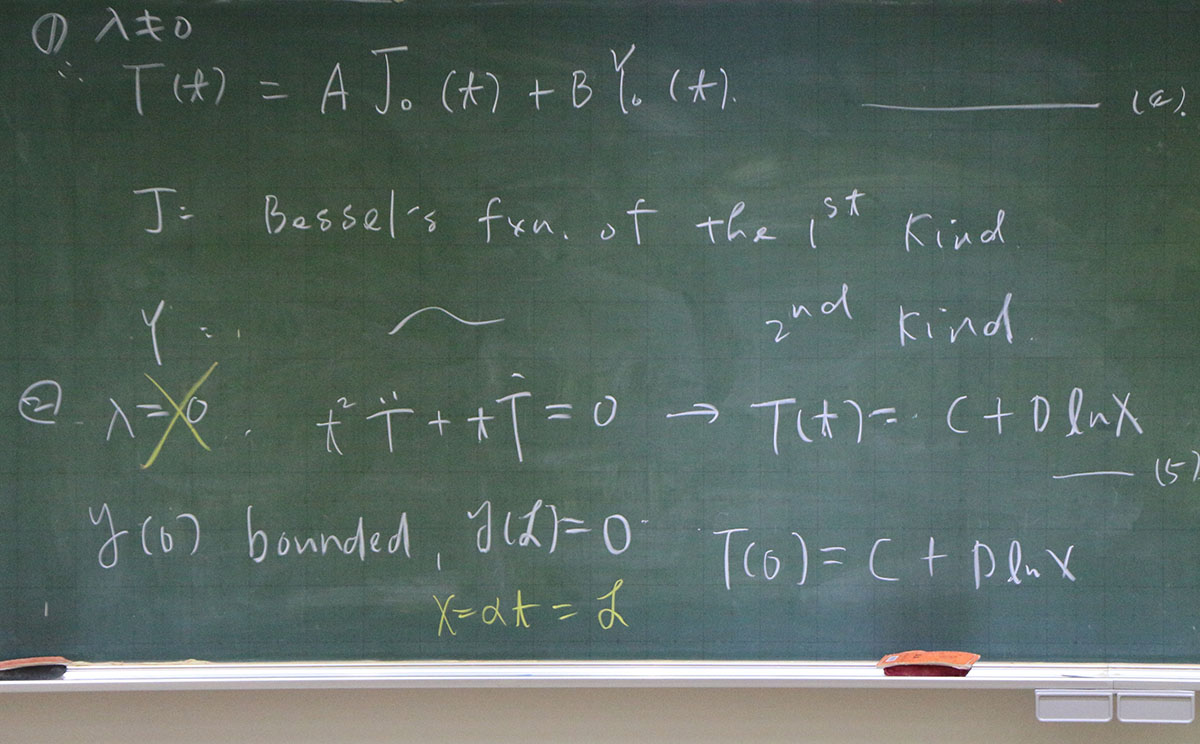 ① λ≠0
∴ T(t) = A J₀(t) + B Y₀(t). (4).
J = Bessel's fxn. of the 1st kind.
Y = 2nd kind.
② λ=0. t² T̈ + t Ṫ = 0 → T(t) = C + D ln X
(5)
y(0) bounded, y(L)=0 T(0) = C + D ln X
X = αt = L